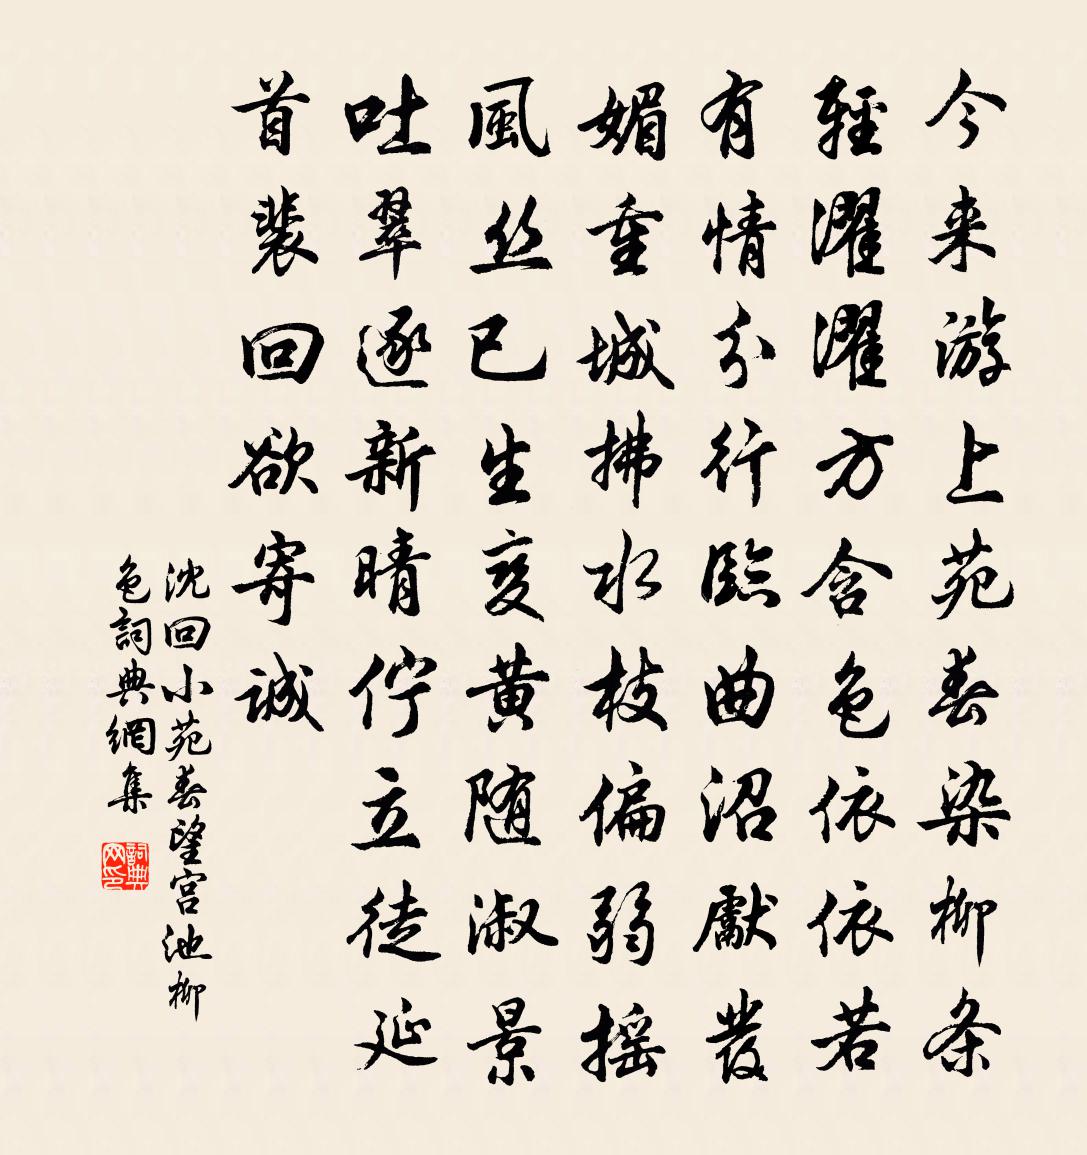 今来游上苑春染柳条
輕濯濯方含色依依若
有情分行臨曲沼獻發
媚重城拂水枝偏弱摇
風丝已生变黄随淑景
吐翠逐新晴佇立徒延
首裴回欲寄诚
沈回小苑春望宫池柳
色詞典網集
詞典
网印